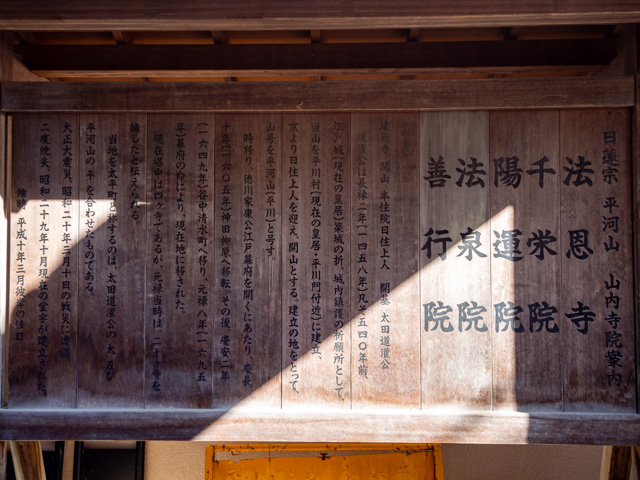 日蓮宗 平河山 山内寺院案内
法恩寺
千栄院
陽運院
法泉院
善行院
法恩寺 開山 本住院日住上人 開基 太田道灌公
道灌公は長禄二年(一四五八年)凡そ五四〇年前、
江戸城(現在の皇居)築城の折、城内鎮護の祈願所として、
当山を平川村(現在の皇居・平川門付近)に建立、
京より日住上人を迎え、開山とする。建立の地をとって、
山号を平河山(平川)と号す。
時移り、徳川家康公江戸幕府を開くにあたり、慶長
十年(一六〇五年)神田柳原へ移転、その後、慶安二年
(一六四九年)谷中清水町へ移り、元禄八年(一六九五
年)幕府の命により、現在地に移された。
現在塔中は四ヶ寺であるが、元禄当時は、二十ヶ寺を
擁したと伝えられる。
当地を太平町と称するのは、太田道灌公の「太」と
平河山の「平」を合わせたものである。
大正大震災、昭和二十年三月十日の戦災に遭遇、
二度焼失、昭和二十九年十月現在の堂宇が建立された。
維時 平成十年三月彼岸の佳日